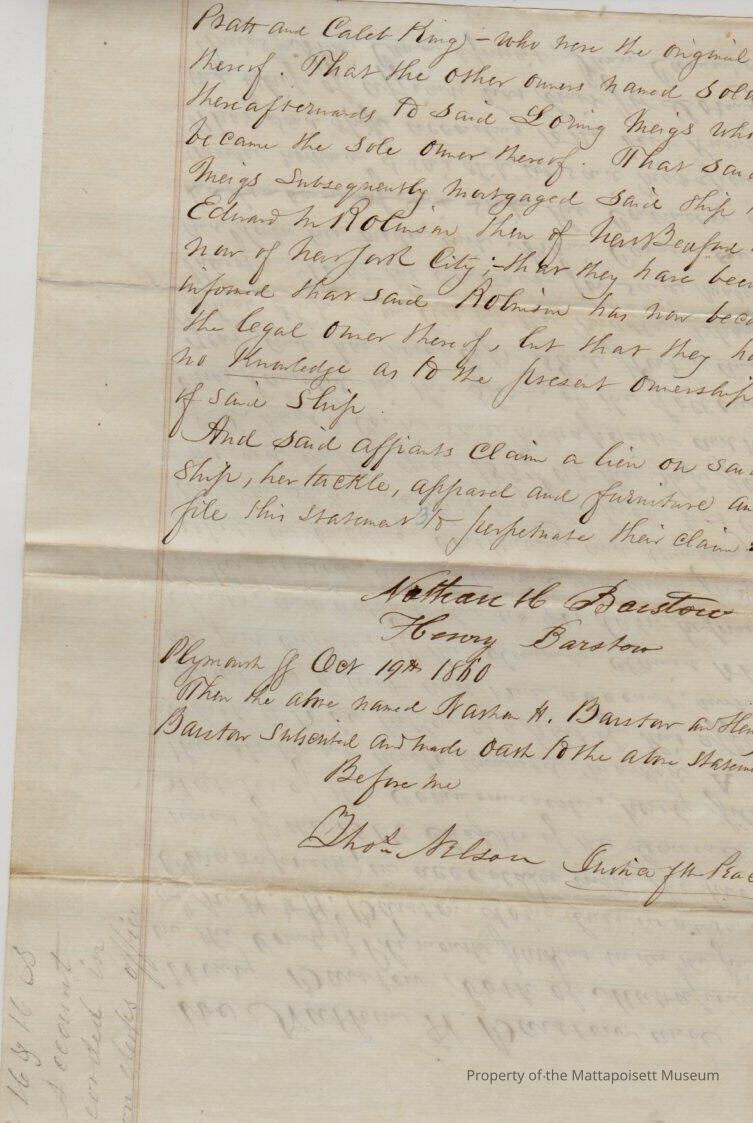 Pratt and Caleb King - who were the original
thereof. That the other owners named sold
thereafterwards to said Loring Meigs who
became the sole owner thereof. That said
Meigs subsequently mortgaged said ship
Edward M Robinson then of New Bedford
now of New York City; that they have been
informed that said Robinson has now beco
the legal owner thereof, but that they ha
no Knowledge as to the present ownership
of said Ship.
And said affiants claim a lien on said
ship, her tackle, apparel and furniture an
file this statement to perpetuate their claim
Nathan H Barstow
Henry Barstow
Plymouth ss Oct 19th 1860
Then the above named Nathan H. Barstow and Hen
Barstow subscribed and made oath to the above statem
Before me
Thos Nelson Justice of the Peac
16 & 16
account
corded in
clerks office
Property of the Mattapoisett Museum